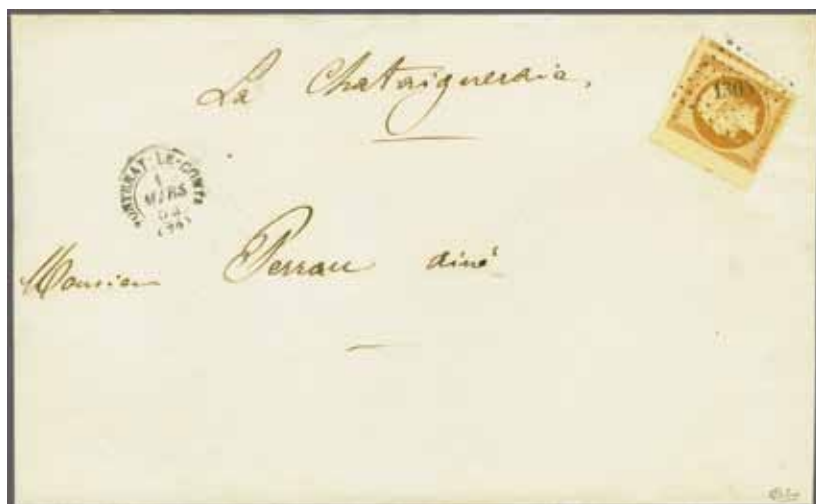 La Chataigneraie,
130
FONTENAY-LE-COMTE
1
MARS
54
(79)
Monsieur Perrau ainé